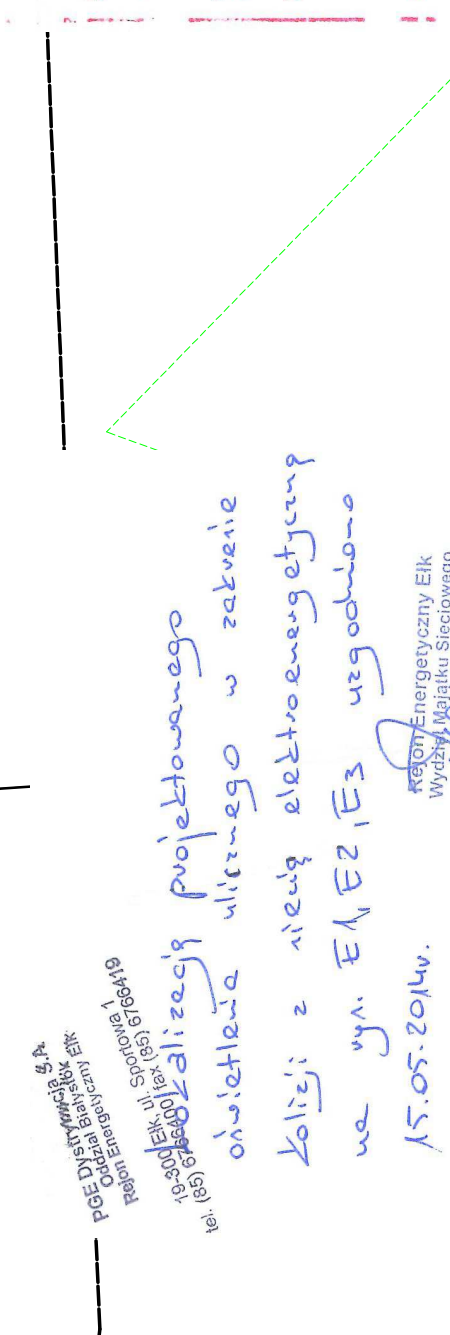 PGE Dystrybucja S.A.
Oddział Białystok
Rejon Energetyczny Ełk
19-300 Ełk, ul. Sportowa 1
tel. (85) 6766400 fax (85) 6766419
Lokalizację projektowanego
oświetlenia ulicznego w zakresie
kolizji z siecią elektroenergetyczną
na rys. E1, E2, E3 uzgodniono
15.05.2014r.
Rejon Energetyczny Ełk
Wydział Majątku Sieciowego